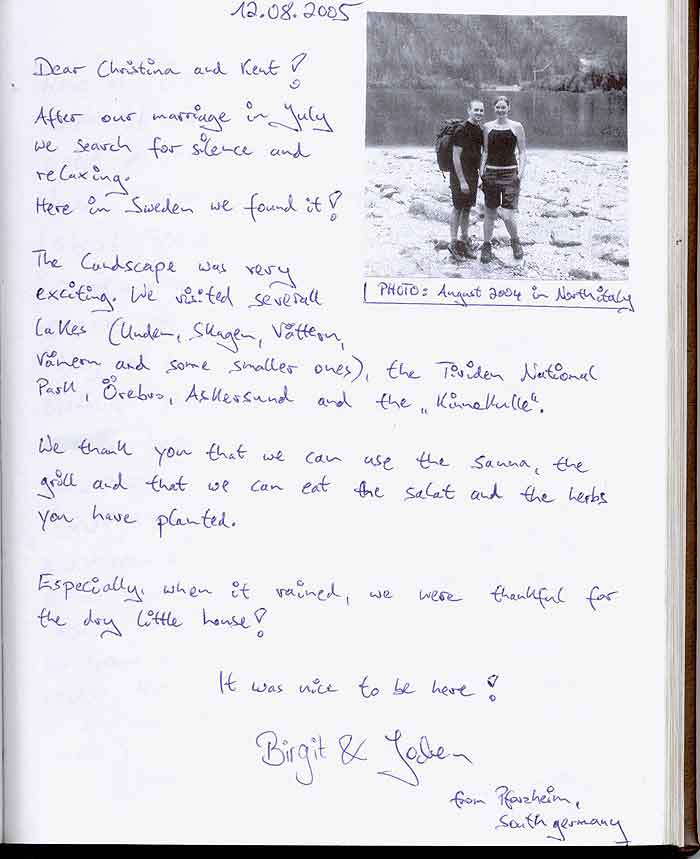 12.08.2005
Dear Christina and Kent!
After our marriage in July
we search for silence and
relaxing.
Here in Sweden we found it!
PHOTO: August 2004 in Northitaly
The Landscape was very
exciting. We visited severall
Lakes (Unden, Skagen, Vättern,
Vänern and some smaller ones), the Tividen National
Park, Örebro, Askersund and the „Kinnekulle".
We thank you that we can use the sauna, the
grill and that we can eat the salat and the herbs
you have planted.
Especially, when it rained, we were thankful for
the dry little house!
It was nice to be here!
Birgit & Jochen
from Pforzheim,
South germany